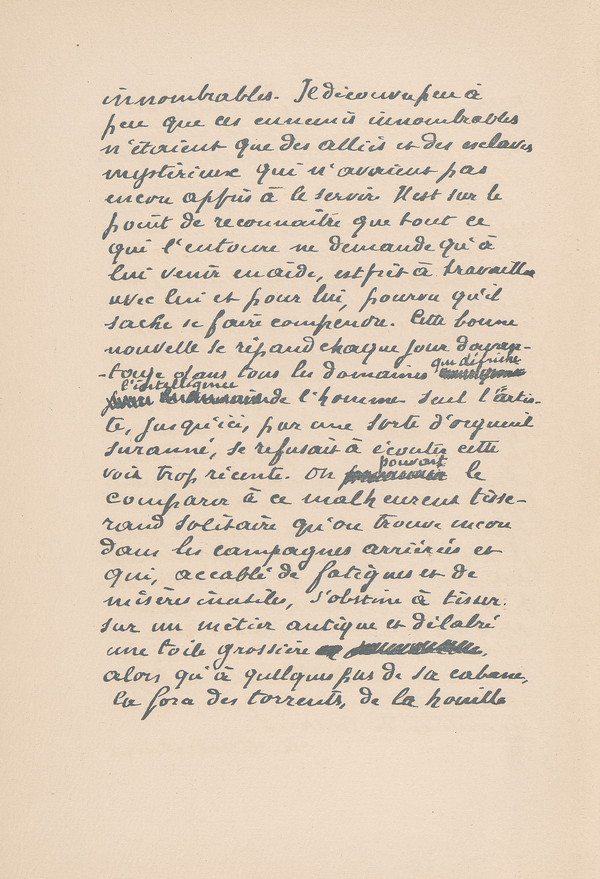 innombrables. Il découvre peu à
peu que ces ennemis innombrables
n'étaient que des alliés et des esclaves
mystérieux qui n'avaient pas
encore appris à le servir. Il est sur le
point de reconnaître que tout ce
qui l'entoure ne demande qu'à
lui venir en aide, est prêt à travailler
avec lui et pour lui, pourvu qu'il
sache se faire comprendre. Cette bonne
nouvelle se répand chaque jour davan-
-tage dans tous les domaines que défriche
l'intelligence
de l'homme. Seul l'artis-
te, jusqu'ici, par une sorte d'orgueil
suranné, se refusait à écouter cette
voix trop récente. On pouvait le
comparer à ce malheureux tisse-
rand solitaire qu'on trouve encore
dans les campagnes arriérées et
qui, accablé de fatigues et de
misères inutiles, s'obstine à tisser
sur un métier antique et délabré
une toile grossière,
alors qu'à quelques pas de sa cabane,
la force des torrents, de la houille